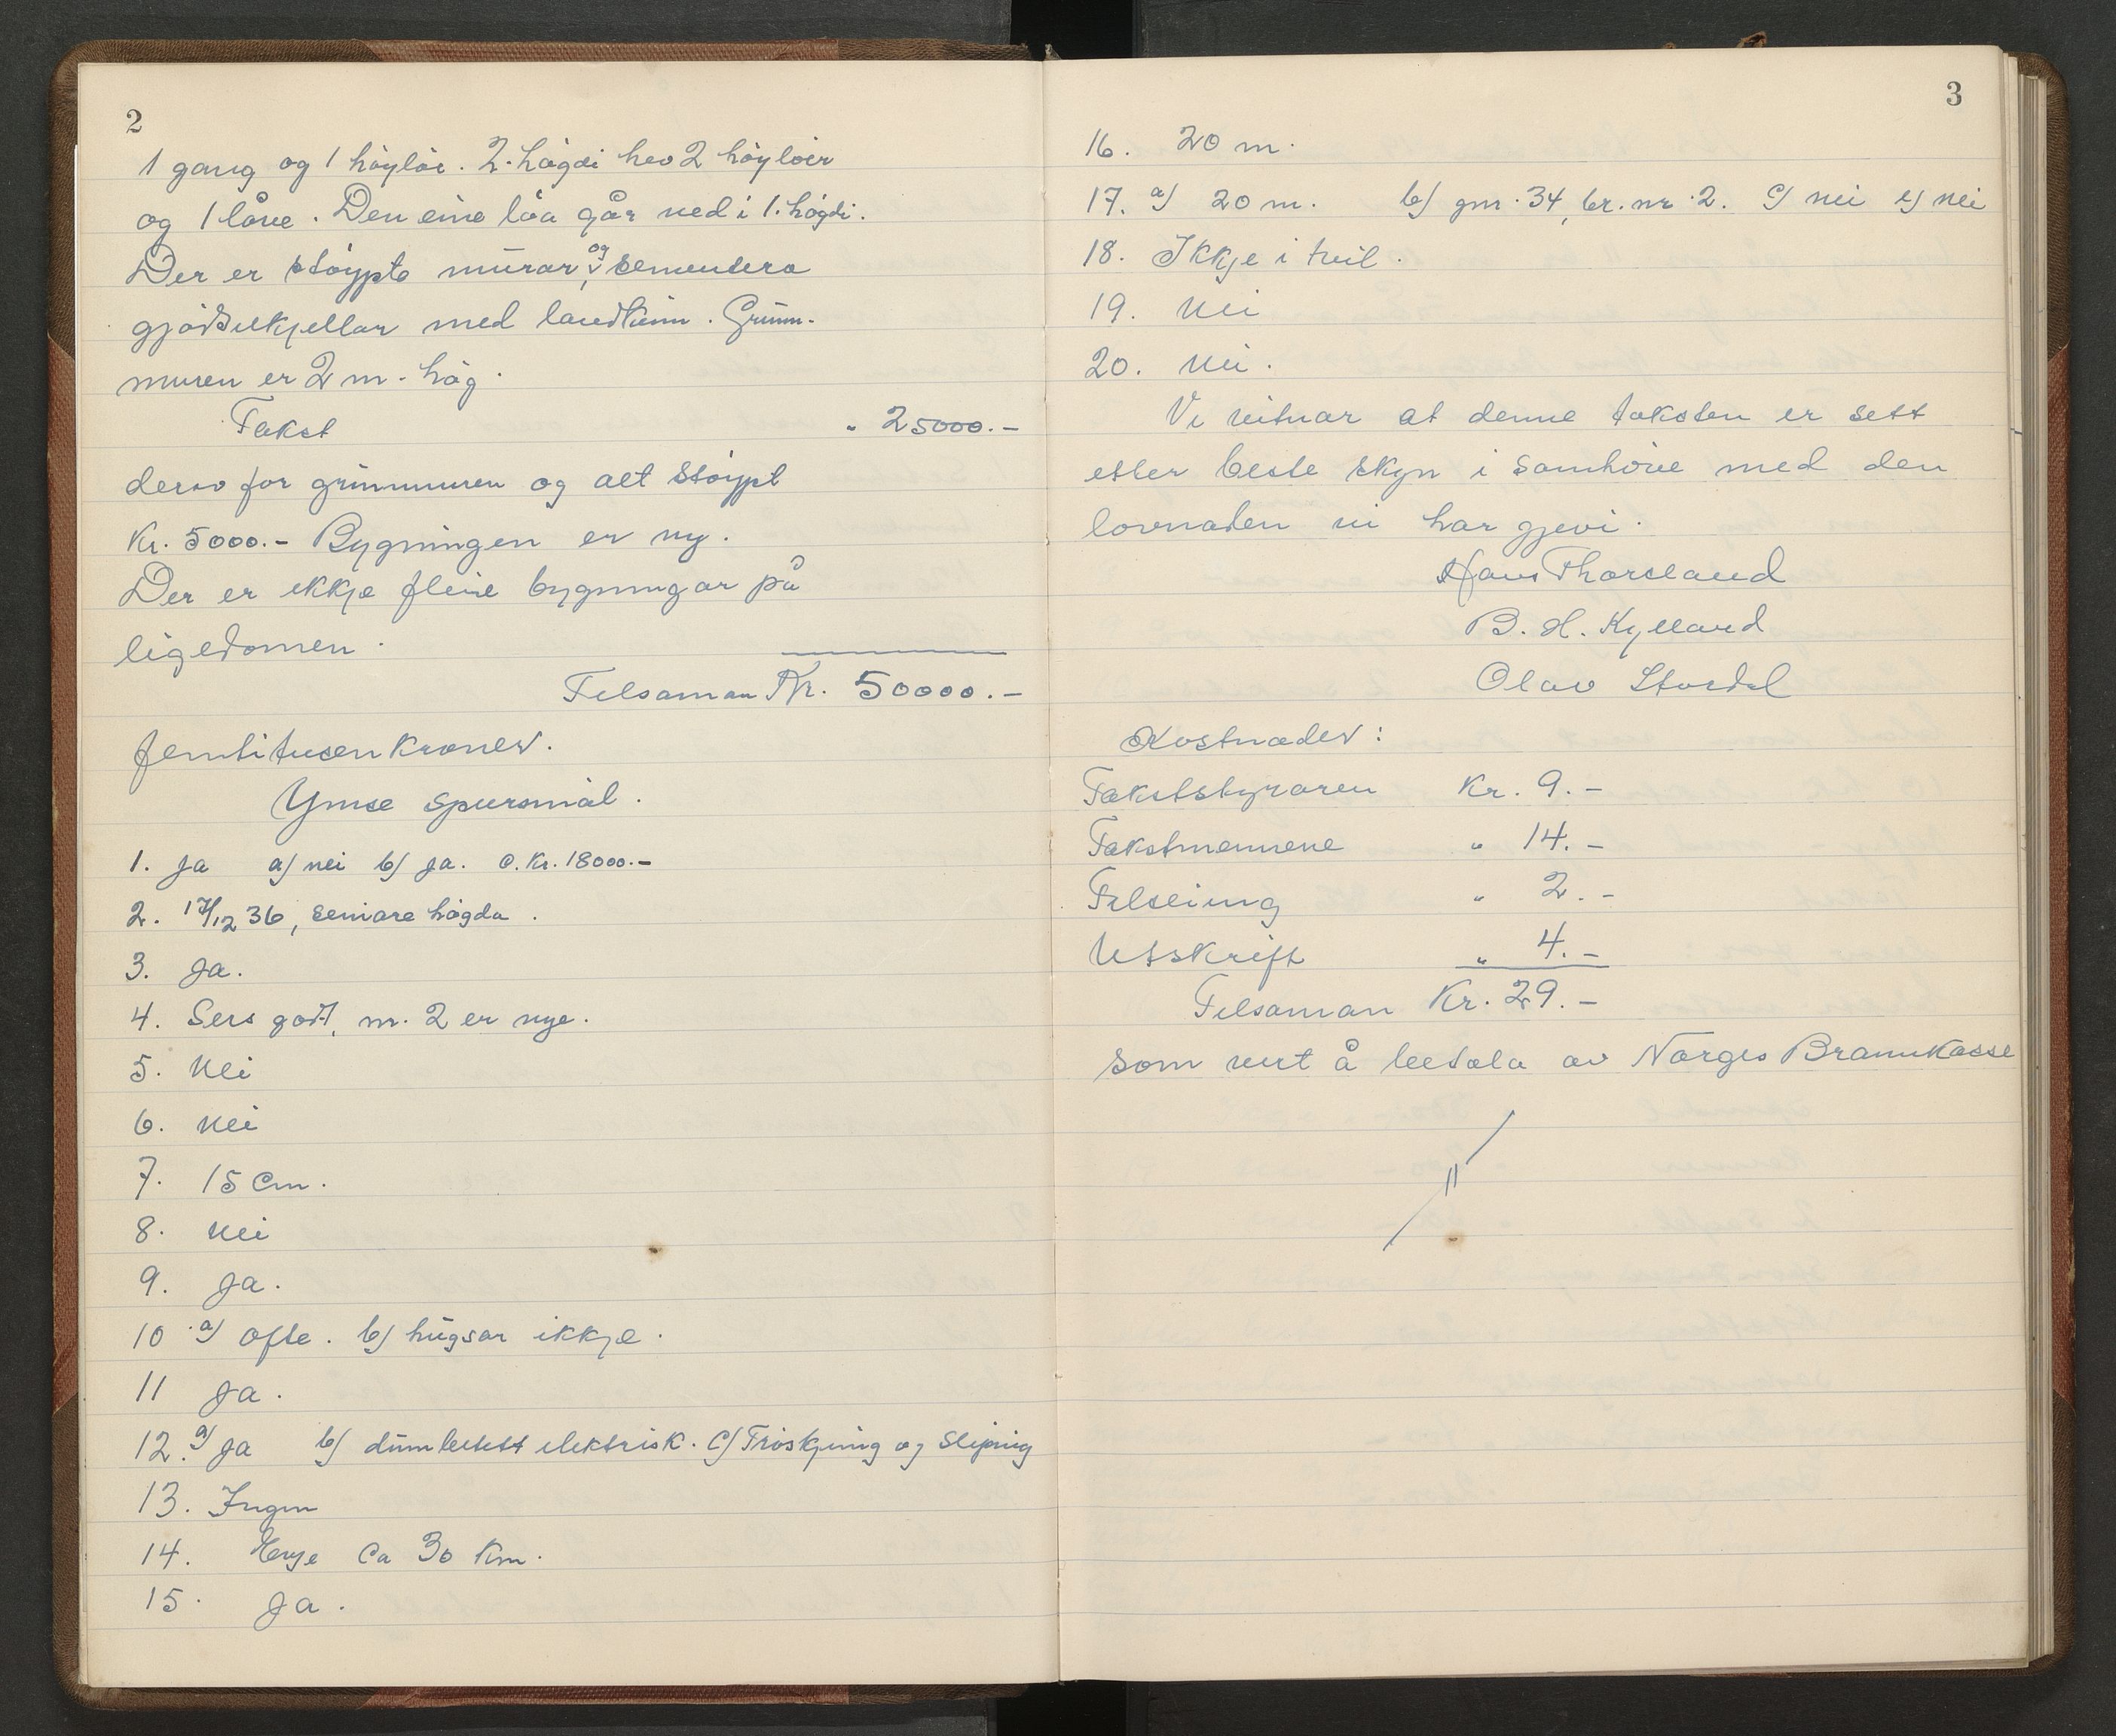 2
1 gang og 1 høyløe. 2. høgdi hev 2 høyløer
og 1 låve. Den eine løa går ned i 1. høgdi.
Der er støypte murar, og sementera
gjødselkjellar med landkum. Grunn-
muren er 2 m. høg.
Takst " 25000.-
derav for grunnmuren og alt støypt
Kr. 5000.- Bygningen er ny.
Der er ikkje fleire bygningar på
eigedomen.
Tilsaman Kr. 50000.-
femtitusen kroner.
Ymse spursmål.
1. Ja a/ nei b/ ja. c. Kr. 18000.-
2. 17/12 36, seinare høgda.
3. Ja.
4. Sers godt, nr. 2 er nye.
5. Nei
6. Nei
7. 15 Cm.
8. Nei
9. Ja.
10. a/ Ofte. b/ hugsar ikkje.
11 Ja.
12. a/ Ja b/ elektrisk. c/ Trøskjing og Sliping
13. Ingen
14. Evje Ca 30 Km.
15. Ja.
3
16. 20 m.
17. a/ 20 m. b/ gnr. 34, br. nr. 2. c/ nei e/ nei
18. Ikkje i tvil.
19. Nei
20. Nei.
Vi vitnar at denne taksten er sett
etter beste skyn i samhøve med den
lovnaden vi har gjevi.
Hans Thorsland
B. H. Kylland
Olav Stordal
Kostnader:
Takststyraren Kr. 9.-
Takstmennene " 14.-
Tilseiing " 2.-
Utskrift " 4.-
Tilsaman Kr. 29.-
som vert å betala av Norges Brannkasse